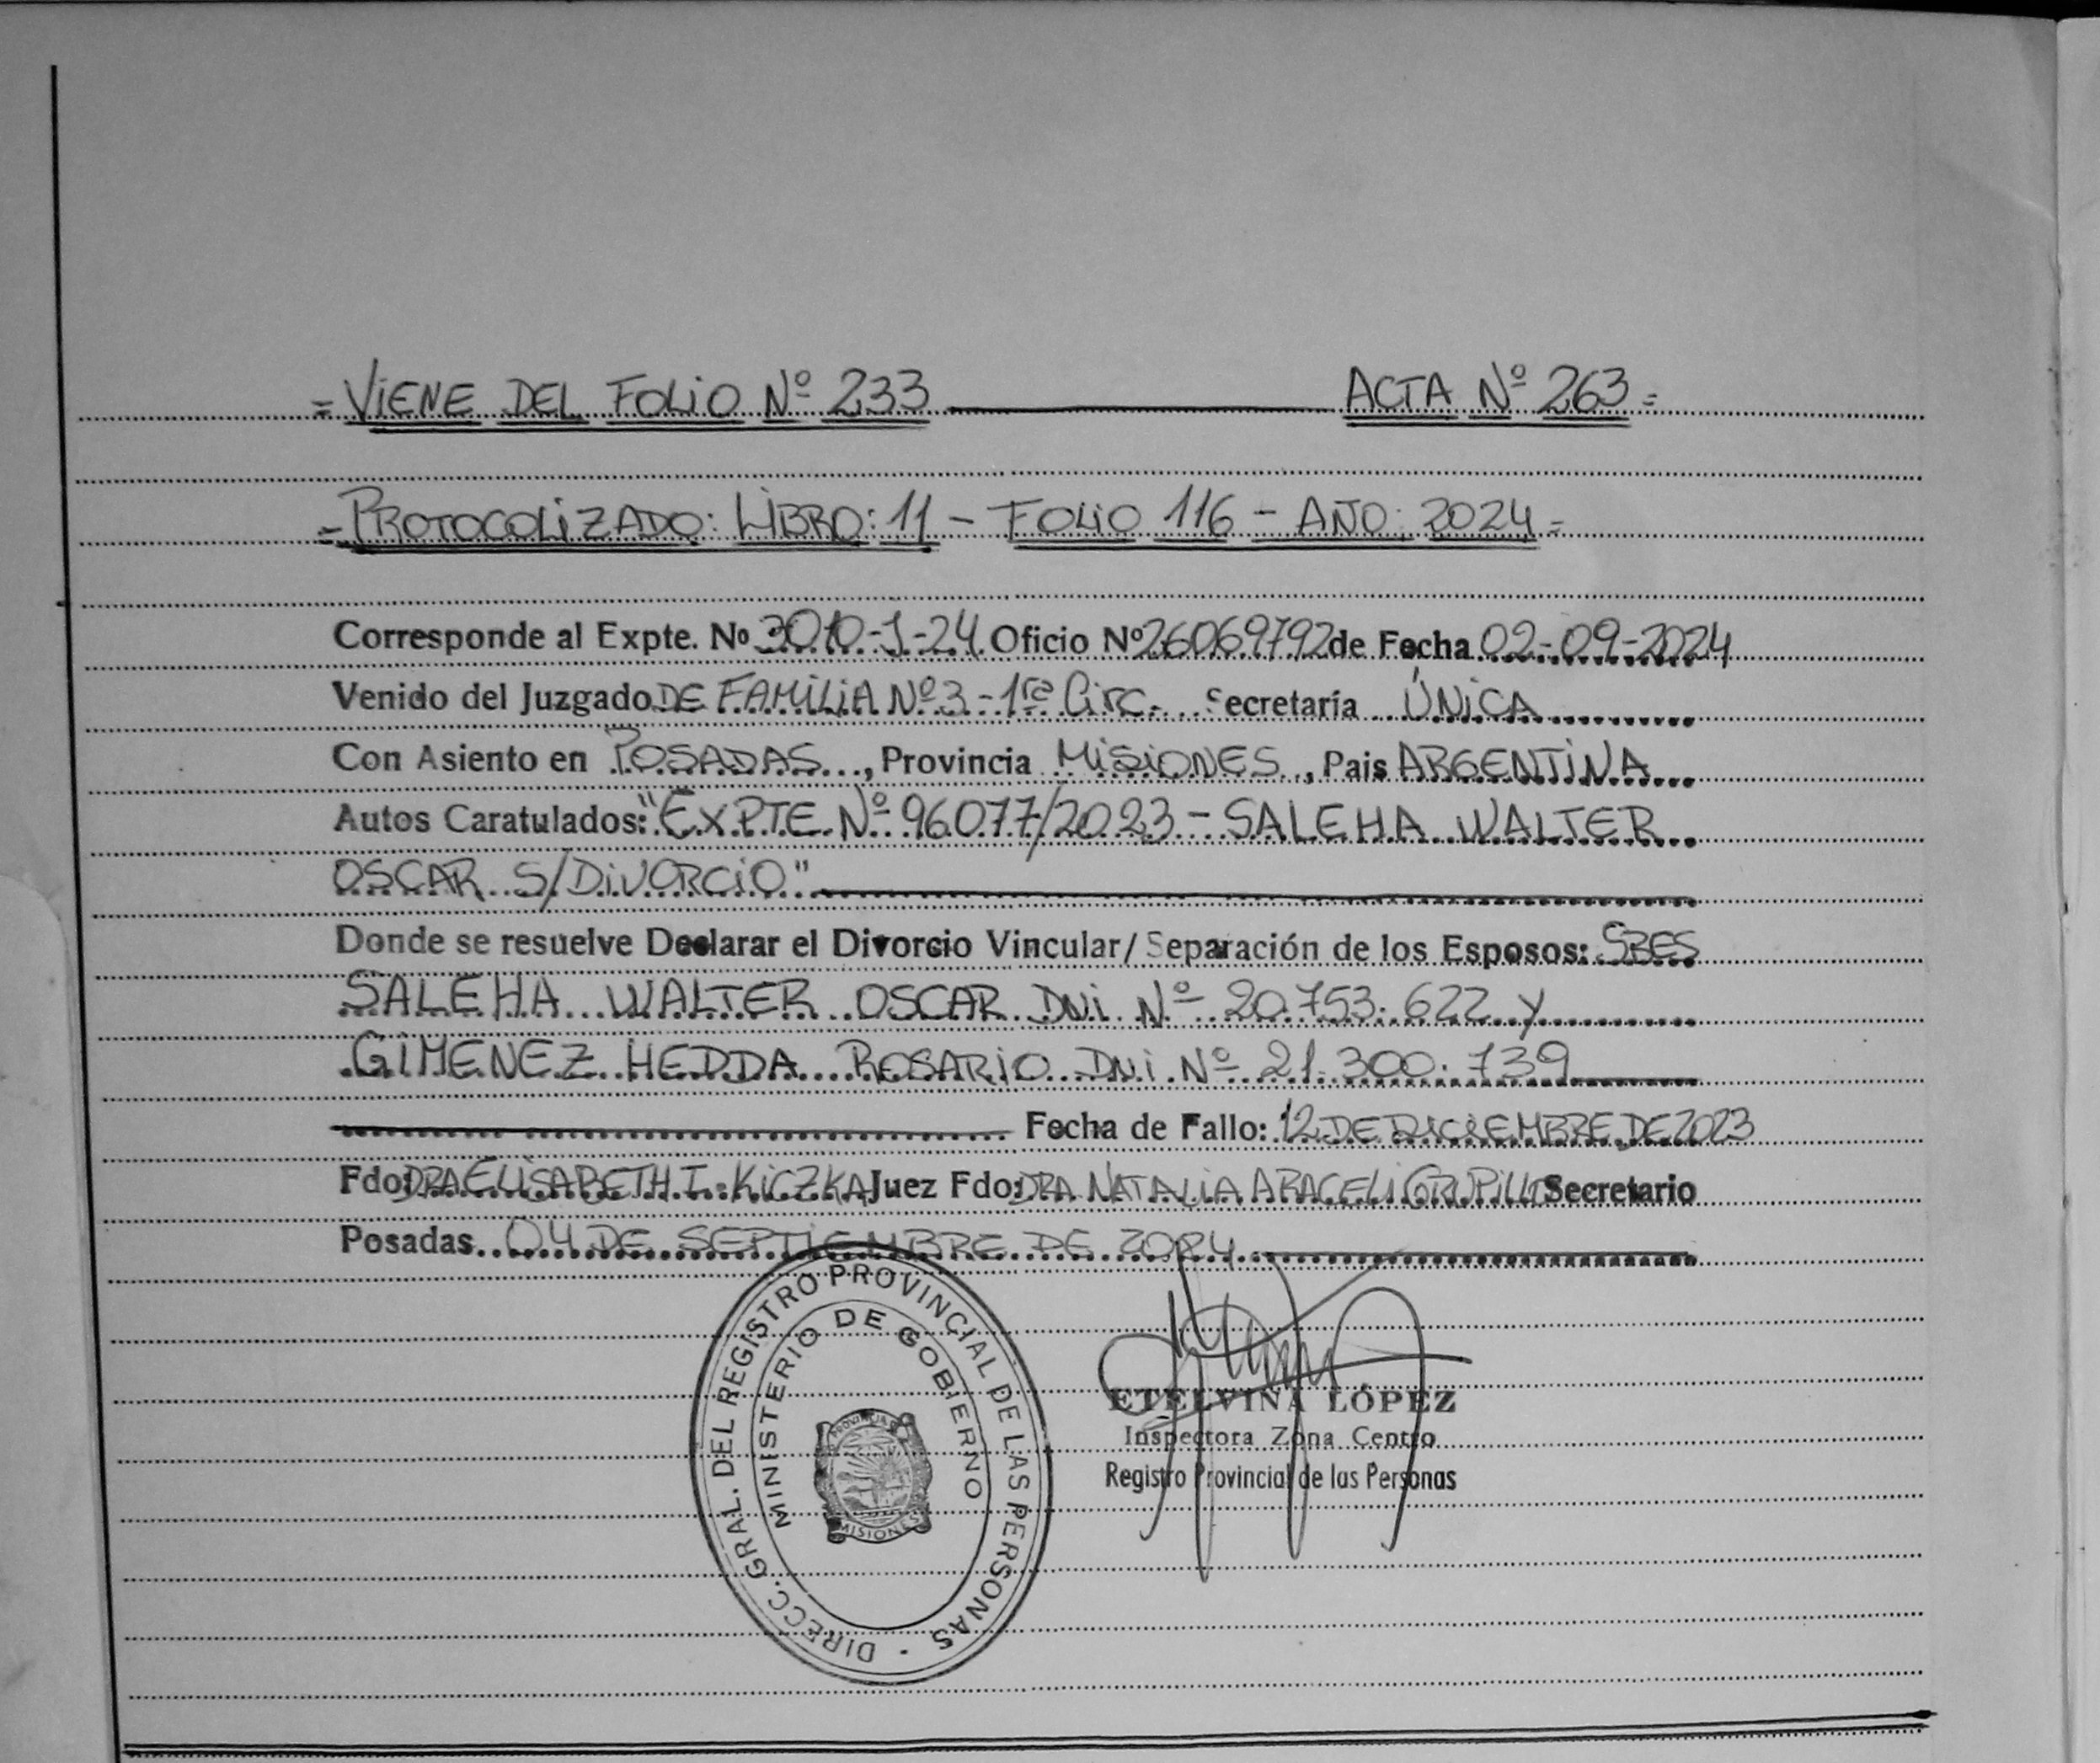 = VIENE DEL FOLIO Nº 233 ACTA Nº 263 =
= PROTOCOLIZADO: LIBRO: 11 - FOLIO 116 - AÑO: 2024 =
Corresponde al Expte. Nº 3010-J-24 Oficio Nº 26069792 de Fecha 02-09-2024
Venido del Juzgado DE FAMILIA Nº 3 - 1ra Circ. Secretaría ÚNICA
Con Asiento en POSADAS, Provincia MISIONES, Pais ARGENTINA
Autos Caratulados: "EXPTE Nº 96077/2023 - SALEHA WALTER
OSCAR S/DIVORCIO"
Donde se resuelve Declarar el Divorcio Vincular/ Separación de los Esposos: SRES
SALEHA WALTER OSCAR DNI Nº 20.753.622 y
GIMENEZ HEDDA ROSARIO DNI Nº 21.300.739
Fecha de Fallo: 12 DE DICIEMBRE DE 2023
Fdo: DRA ELISABETH I. KICZKA Juez Fdo: DRA NATALIA ARACELI Secretario
Posadas 04 DE SEPTIEMBRE DE 2024
DIRECC. GRAL. DEL REGISTRO PROVINCIAL DE LAS PERSONAS
MINISTERIO DE GOBIERNO
PROVINCIA DE
MISIONES
ETELVINA LÓPEZ
Inspectora Zona Centro
Registro Provincial de las Personas